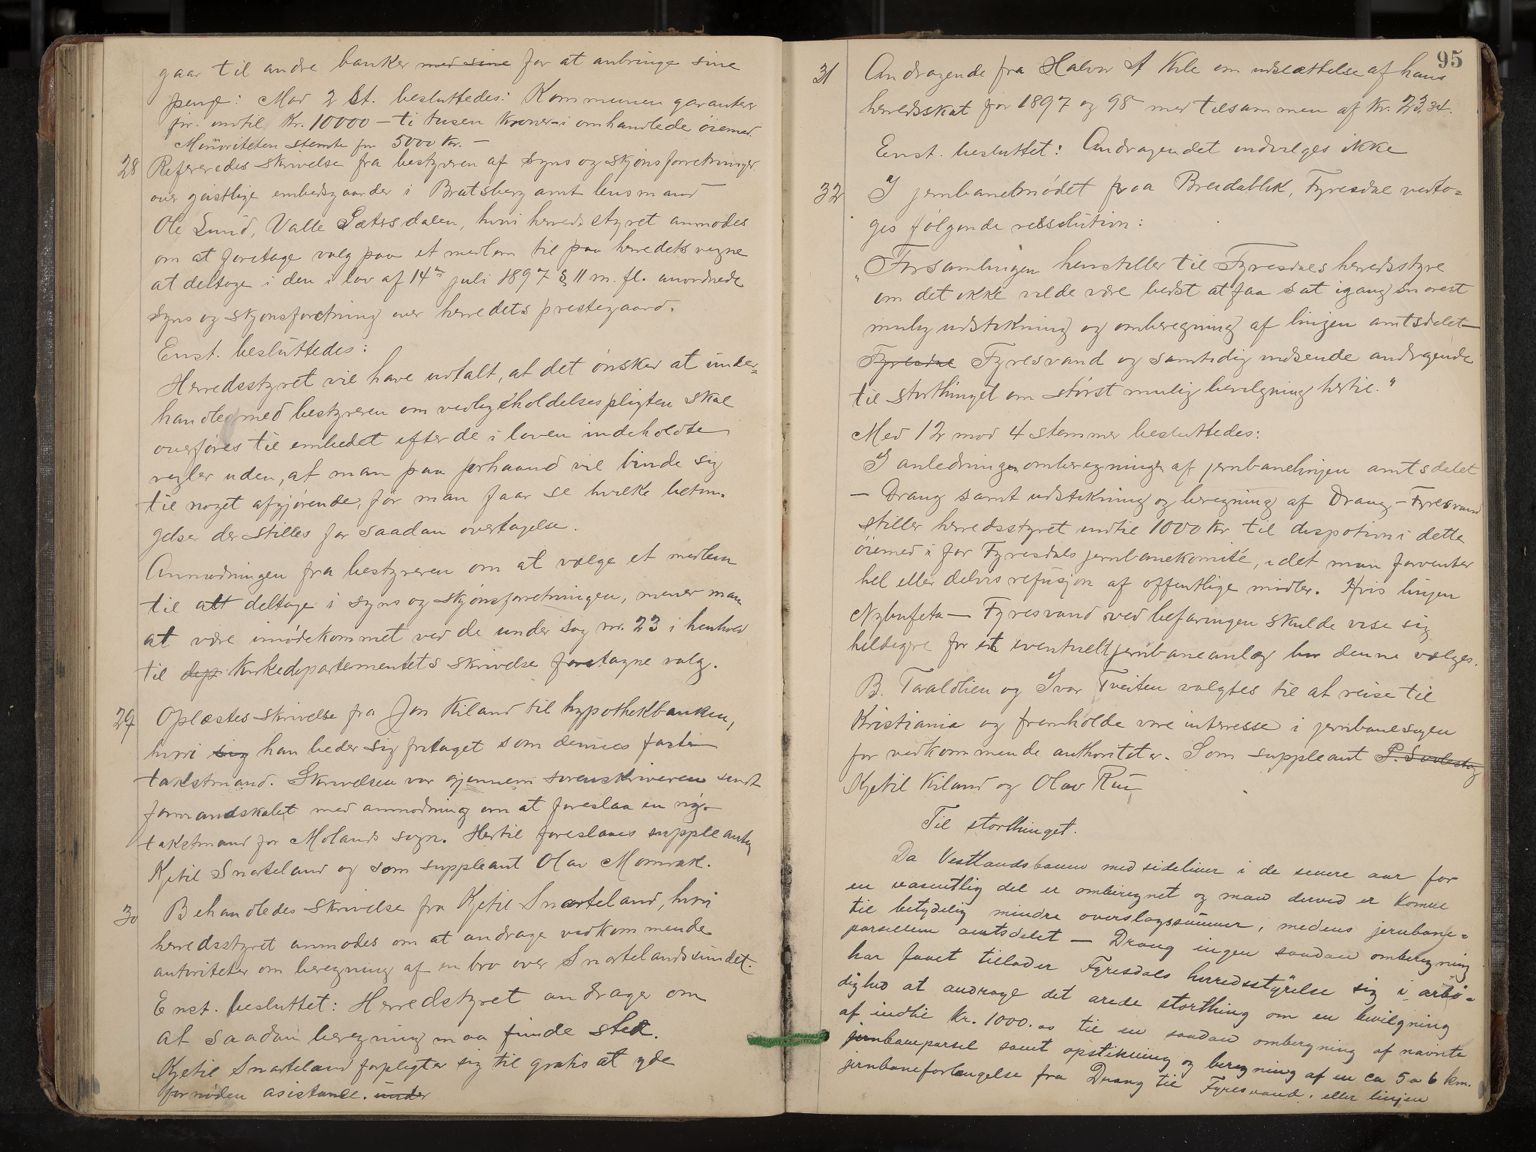 gaar til andre banker med sine for at anbringe sine
penge: Mod 2 St. besluttedes: Kommunen garanterer
for indtil Kr. 10000 – ti tusen Kroner – i omhandlede øiemed
Minoriteten stemte for 5000 Kr. –
28 Refereredes skrivelse fra bestyreren af syns og skjønsforretninger
over geistlige embedsgaarder i Bratsberg amt lensmand
Ole Lund, Valle Sætersdalen, hvori herredsstyret anmodes
om at foretage valg paa et medlem til paa herredets vegne
at deltage i den i lov af 14de juli 1897 § 11 m. fl. anordnede
syns og skjønsforretning over herredets prestegaard.
Enst. besluttedes:
Herredsstyret vil have udtalt, at det ønsker at under-
handle med bestyreren om vedligeholdelsespligten skal
overføres til embedet efter de i loven indeholdte
regler uden, at man paa forhaand vil binde sig
til noget afgjørende, før man faar se hvilke betin-
gelser der stilles for saadan overtagelse.
Anmodningen fra bestyreren om at vælge et medlem
til att deltage i syns og skjønsforretningen, mener man
at være imødekommet ved de under sag no. 23 i henhold
til dep Kirkedepartementets skrivelse foretagne valg.
29 Oplæstes skrivelse fra Jon Kiland til hypothekbanken,
hvori sig han beder sig fritaget som dennes faste
takstmand. Skrivelsen var gjennem sorenskriveren sendt
formandskabet med anmodning om at foreslaa en ny
takstmand for Molands sogn. Hertil foreslaaes suppleanten
Kjetil Snarteland og som suppleant Olav Momrak.
30 Behandledes skrivelse fra Kjetil Snarteland, hvori
herredsstyret anmodes om at andrage vedkommende
autoriteter om beregning af en bro over Snartelandssundet.
Enst. besluttet: Herredstyret andrager om
at saadan beregning maa finde sted.
Kjetil Snarteland forpligter sig til gratis at yde
fornøden asistance. under
95
31 Andragende fra Halvor A Kile om udslættelse af hans
herredsskat for 1897 og 98 med tilsammen af Kr. 23.34.
Enst. besluttet: Andragendet indvilges ikke
32 I jernbanemødet paa Breidablik, Fyresdal vedto-
ges følgende resolution:
"Forsamlingen henstiller til Fyresdals herredsstyre
om det ikke vilde være bedst at faa sat igang snarest
mulig udstikning og omberegning af linjen amtsdelet –
Fyresdal Fyresvand og samtidig indsende andragende
til storthinget om størst mulig bevilgning hertil."
Med 12 mod 4 stemmer besluttedes:
I anledningen omberegninger af jernbanelinjen amtsdelet
– Drang samt udstikning og beregning af Drang – Fyresvand
stiller herredsstyret indtil 1000 Kr til dispotion i dette
øiemed i for Fyresdals jernbanekomité, idet man forventer
hel eller delvis refusjon af offentlige midler. Hvis linjen
Nybufeta – Fyresvand ved befaringen skulde vise sig
heldigere for et eventuelt jernbaneanlæg bør denne vælges.
B. Taraldlien og Ivar Tveiten valgtes til at reise til
Kristiania og fremholde vore interesse i jernbanesagen
for vedkommende authoriteter. Som suppleant
Kjetil Kiland og Olav Rui
Til storthinget.
Da Vestlandsbanen med sidelinier i de senere aar for
en væsentlig del er omberegnet og man derved er komme
til betydelig mindre overslagssummer, medens jernbane-
parsellen amtsdelet – Drang ingen saadan omberegning
har faaet tillader Fyresdals herredsstyrelse sig i ærbø-
dighed at andrage det ærede storthing om en bevilgning
af indtil Kr. 1000.00 til en saadan omberegning af nævnte
jernbaneparsel samt opstikning og beregning af en ca 5 a 6 km.
jernbaneforlængelse fra Drang til Fyresvand, eller linjen